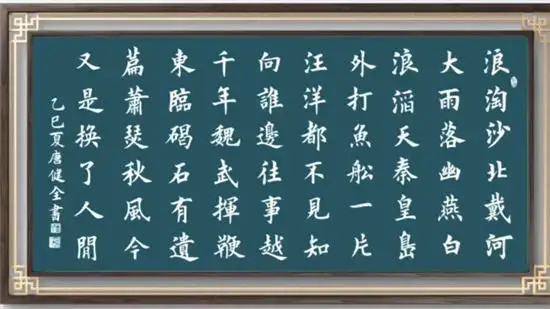 浪淘沙北戴河
大雨落幽燕白
浪滔天秦皇島
外打魚船一片
汪洋都不見知
向誰邊往事越
千年魏武揮鞭
東臨碣石有遺
篇蕭瑟秋風今
又是换了人間
乙巳夏唐健全書